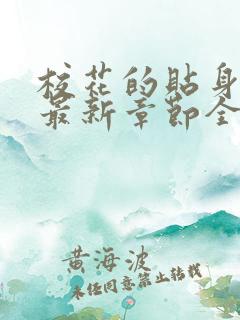 校花的贴身
最新章节全
黄海波
未经同意禁止转载